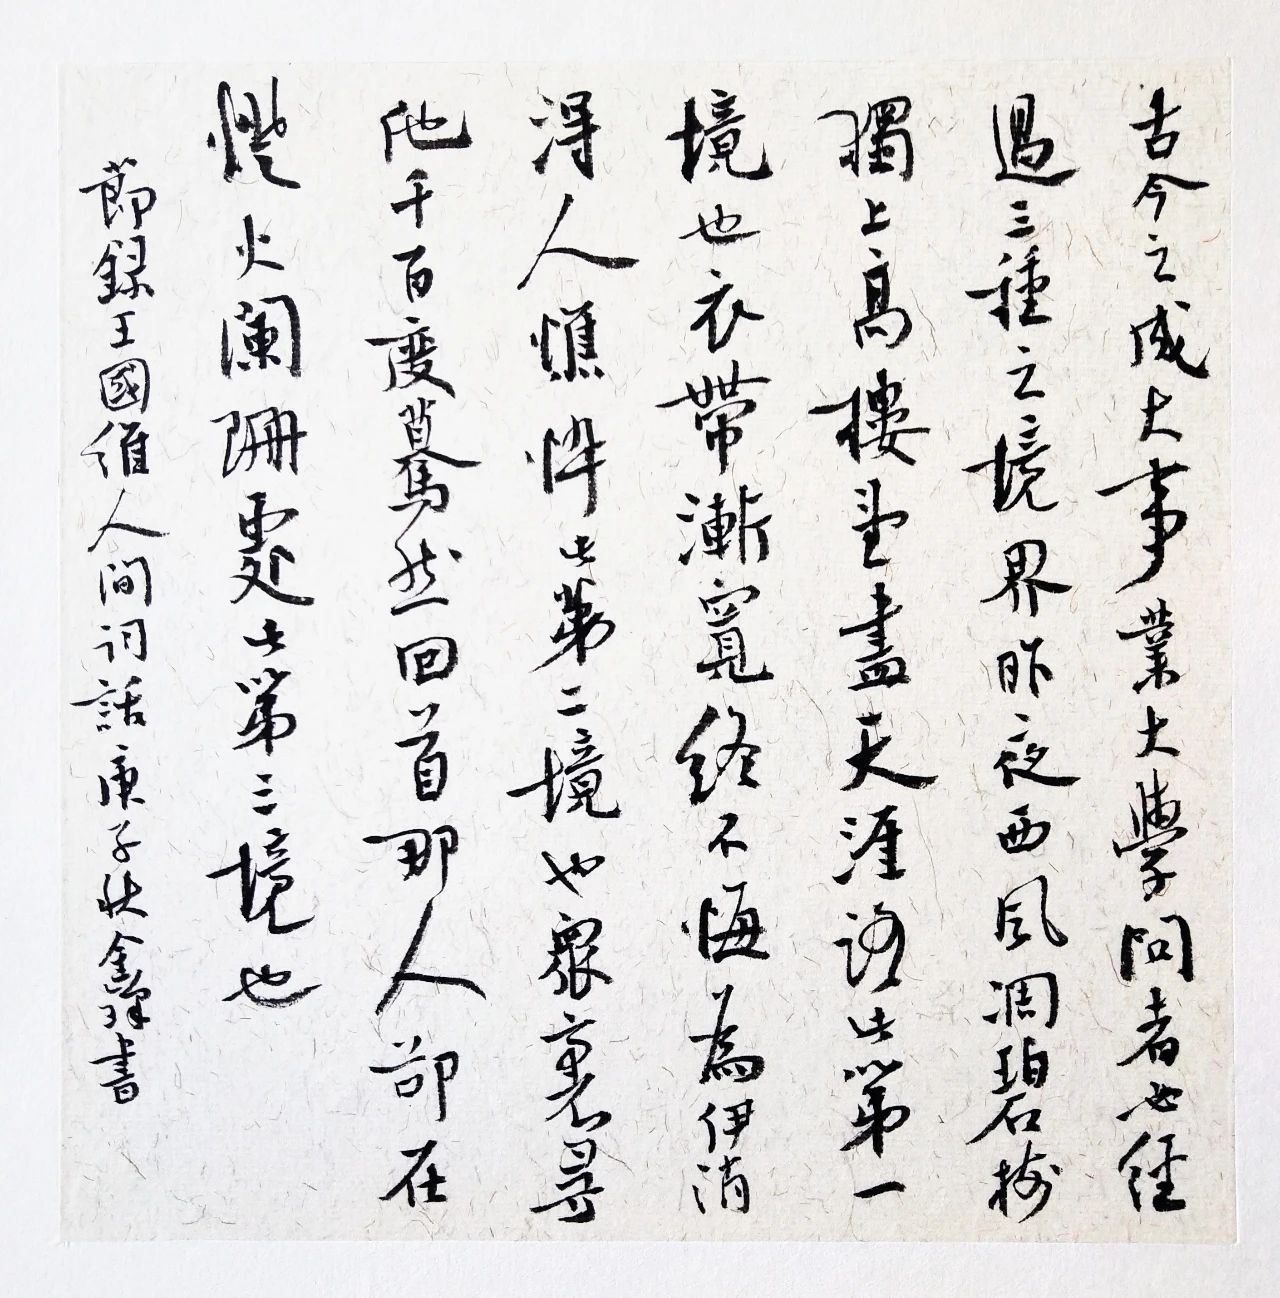 古今之成大事業大學問者必經
過三種之境界昨夜西風凋碧樹
獨上高樓望盡天涯路此第一
境也衣帶漸寬終不悔為伊消
得人憔悴此第二境也眾裏尋
他千百度驀然回首那人卻在
燈火闌珊處此第三境也
節錄王國維人間詞話庚子秋鑫輝書